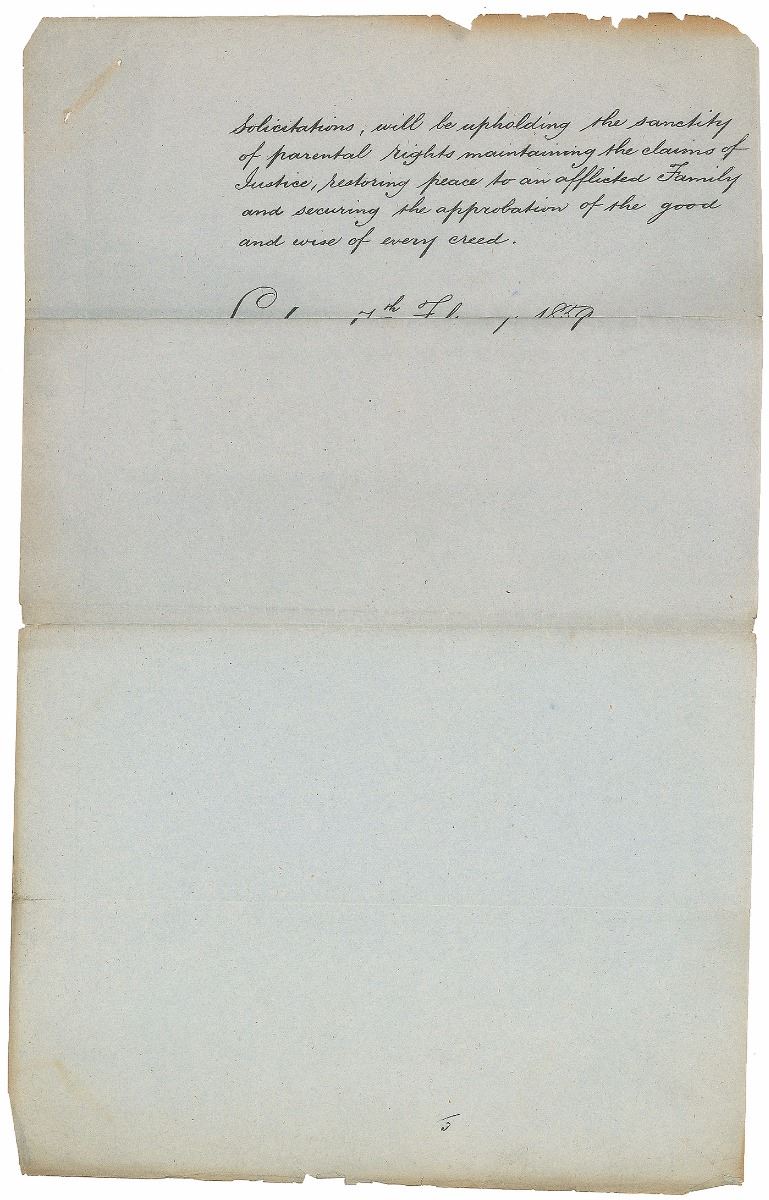 Solicitations, will be upholding the sanctity
of parental rights maintaining the claims of
Justice, restoring peace to an afflicted Family
and securing the approbation of the good
and wise of every creed.
7th 1859
5